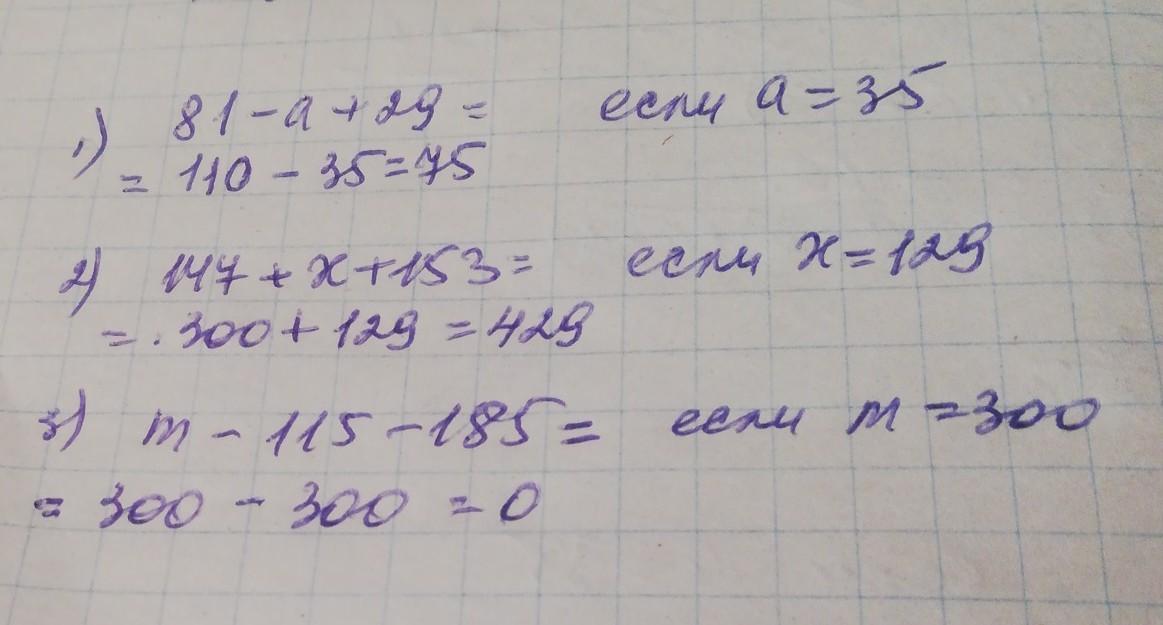 1) 81 - a + 29 = если a = 35
= 110 - 35 = 75
2) 147 + x + 153 = если x = 129
= 300 + 129 = 429
3) m - 115 - 185 = если m = 300
= 300 - 300 = 0